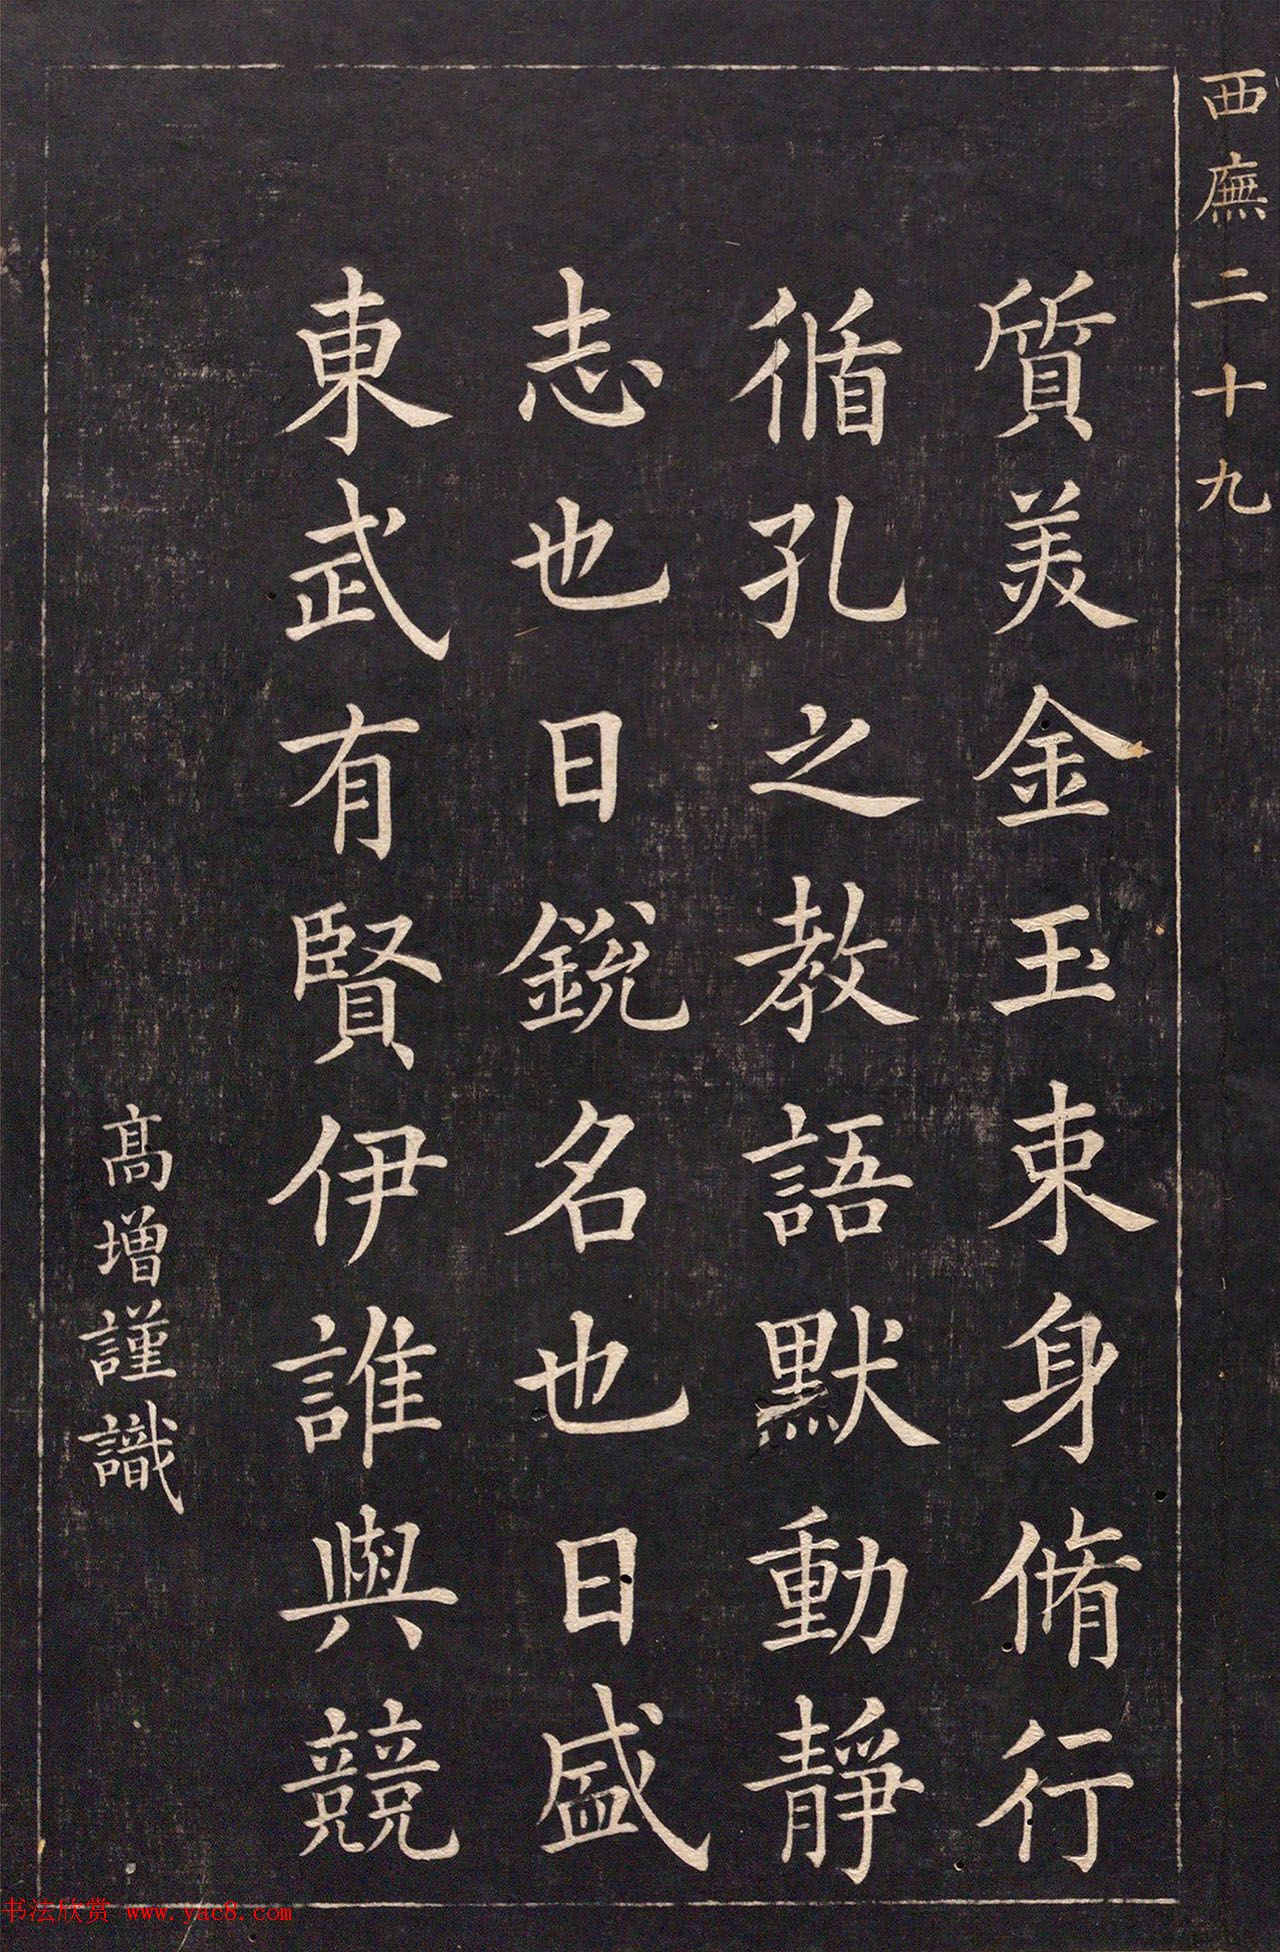 西廡二十九
質美金玉束身脩行
循孔之教語默動靜
志也日銳名也日盛
東武有賢伊誰與競
高增謹識
书法欣赏 www.yac8.com